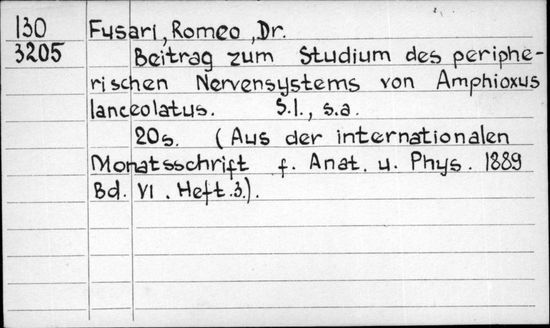 130 Fusari, Romeo, Dr.
3205 Beitrag zum Studium des periphe-
rischen Nervensystems von Amphioxus
lanceolatus. S.l., s.a.
20s. (Aus der internationalen
Monatsschrift f. Anat. u. Phys. 1889
Bd. VI. Heft.3.).